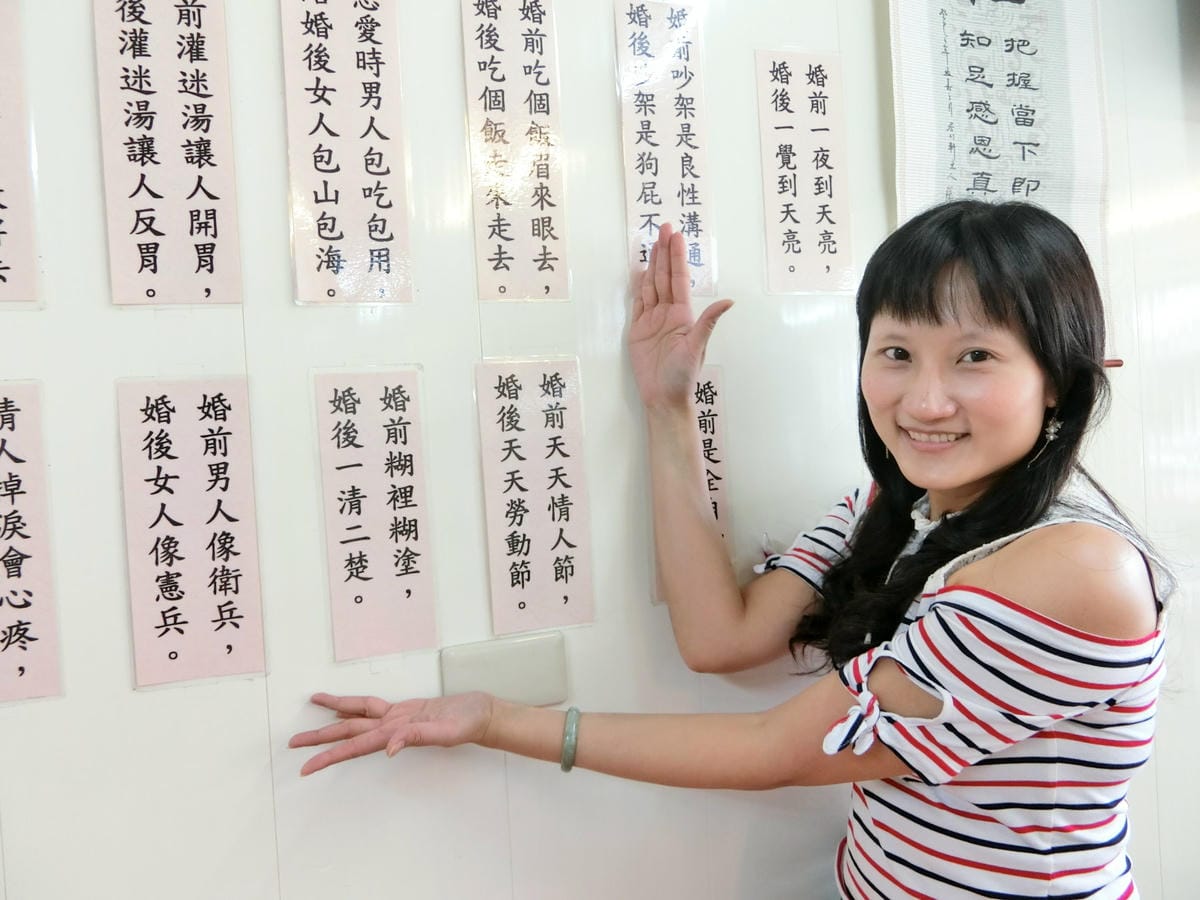 把握當下即
知足感恩真
婚前一夜到天亮，
婚後一覺到天亮。
婚前吵架是良性溝通，
婚後吵架是狗屁不
婚前吃個飯眉來眼去，
婚後吃個飯走來走去。
戀愛時男人包吃包用，
結婚後女人包山包海。
前灌迷湯讓人開胃，
後灌迷湯讓人反胃。
婚前是全
婚前天天情人節，
婚後天天勞動節。
婚前糊裡糊塗，
婚後一清二楚。
婚前男人像衛兵，
婚後女人像憲兵。
情人掉淚會心疼，